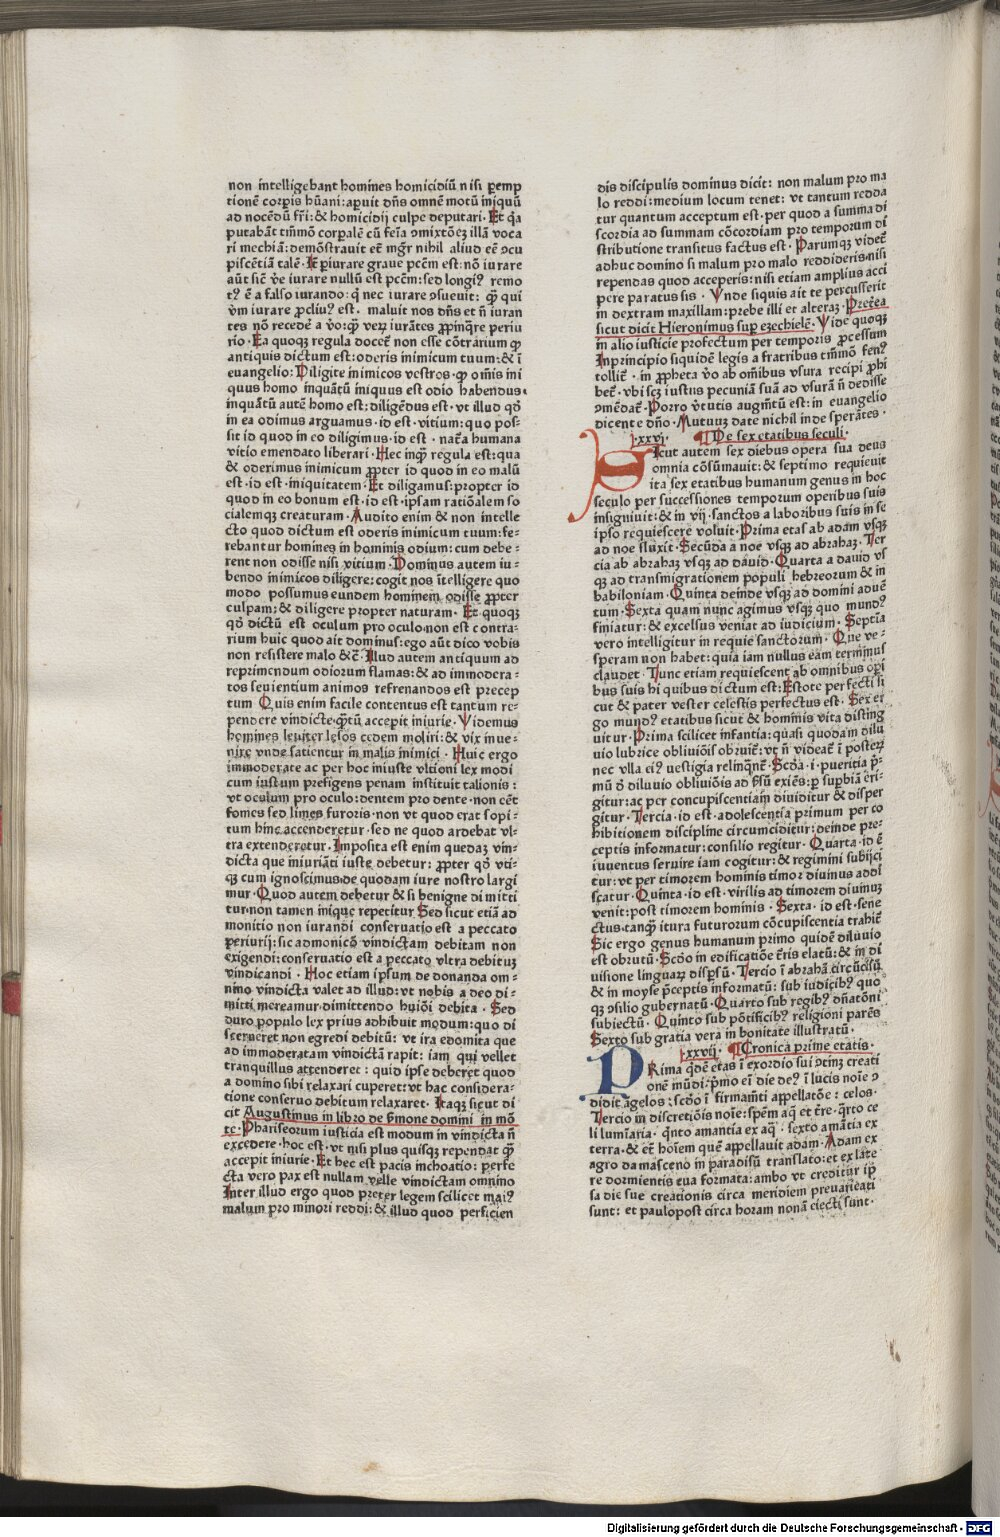 non intelligebant homines homicidiū nisi ꝑemp
tionē corꝑis hūani: aꝑuit dn̄s omnē motū iniquū
ad nocēdū fr̄i: & homicidij culpe deputari. Et q̄a
putabāt tm̄mō corꝑalē cū fēia ↄmixtōeꝫ illā voca
ri mechiā: demōstrauit eē mḡr nihil aliud eē ↄcu
piscētiā talē. Et ꝑiurare graue pctm̄ est: nō iurare
aūt sic̄ ṽe iurare nullū est pctm̄: sed longiꝰ remo
tꝰ ē a falso iurando: q̄ nec iurare ↄsueuit: ꝙ qui
ṽm iurare ꝓcliuꝰ est. maluit nos dn̄s et n̄ iuran
tes nō recedēə a ṽo: ꝙ veꝝ iurātes ꝓpinq̄re periu
rio. Ea quoqꝫ regula docet̄ non esse cōtrarium ꝙ
antiquis dictum est: oderis inimicum tuum: & ī
euangelio: Diligite inimicos vestros. ꝙ om̄is ini
quus homo inquātū iniquus est odio habendus.
inquātū autē homo est: diligēdus est. vt illud qō
in ea odimus arguamus. id est. vitium: quo pos-
sit id quod in eo diligimus. id est. nat̄a humana
vitio emendato liberari. Hec inqꝫ regula est: qua
& oderimus inimicum ꝓpter id quod in eo malū
est. id est. iniquitatem. Et diligamus: propter id
quod in eo bonum est. id est. ipsam ratiōalem so
cialemqꝫ creaturam. Audito enim & non intelle
cto quod dictum est oderis inimicum tuum: fe-
rebantur homines in hominis odium: cum debe-
rent non odisse nisi vitium. Dominus autem iu-
bendo inimicos diligere: cogit nos ītelligere quo
modo possumus eundem hominem odisse ꝓpter
culpam: & diligere propter naturam. Et quoqꝫ
qō dictū est oculum pro oculo. non est contra-
rium huic quod ait dominus: ego aūt dico vobis
non resistere malo &c̄. Illud autem antiquum ad
reprimendum odiorum flamas: & ad immodera-
tos seuientium animos refrenandos est precep
tum Quis enim facile contentus est tantum re-
pendere vindicte. ꝙtū accepit iniurie. Videmus
homines leuiter lesos cedem moliri: & vix inue-
nire vnde satientur in malis inimici. Huic ergo
immoderate ac per hoc iniuste vltioni lex modi
cum iustum prefigens penam instituit talionis:
vt oculum pro oculo: dentem pro dente. non cēt
fomes sed limes furoris. non vt quod erat sopi-
tum hinc accenderetur. sed ne quod ardebat vl-
tra extenderetur. Imposita est enim quedaꝫ vin-
dicta que iniuriāti iuste debetur: ꝓpter qō vti-
qꝫ cum ignoscimus. de quodam iure nostro largi
mur. Quod autem debetur & si benigne dimitti
tur. non tamen inique repetitur Sed sicut etiā ad
monitio non iurandi conseruatio est a peccato
ꝑeriurij: sic admonicō vindictam debitam non
exigendi: conseruatio est a peccato vltra debituꝫ
vindicandi. Hoc etiam ipsum de donanda om-
nino vindicta valet ad illud: vt nobis a deo di-
mitti mereamur. dimittendo huiōi debita. Sed
duro populo lex prius adhibuit modum: quo di
scerneret non egredi debitū: vt ira edomita que
ad immoderatam vindictā rapit: iam qui vellet
tranquillus attenderet: quid ipse deberet quod
a domino sibi relaxari cuperet: vt hac considera-
tione conseruo debitum relaxaret. Itaqꝫ sicut di
cit Augustinus in libro de ſmone domini in mō
te. Phariseorum iusticia est modum in vindicta n̄
excedere. hoc est. vt nisi plus quisqꝫ rependat ꝙ
accepit iniurie. Et hec est pacis inchoatio: perfe
cta vero pax est nullam velle vindictam omnino
Inter illud ergo quod preter legem scilicet maiꝰ
malum pro minori reddi: & illud quod perficien
dis discipulis dominus dicit: non malum pro ma
lo reddi: medium locum tenet: vt tantum redda
tur quantum acceptum est. per quod a summa di
scordia ad summam cōcordiam pro temporum di
stributione transitus factus est. Parumqꝫ videt̄
adhuc domino si malum pro malo reddideris. nisi
rependas quod acceperis: nisi etiam amplius acci
pere paratus sis. Vnde siquis ait te percusserit
in dextram maxillam: prebe illi et alteraꝫ. Preterea
sicut dicit Hieronimus suꝑ ezechielē. Vide quoqꝫ
in alio iusticie profectum per temporis ꝓcessum
In principio siquidē legis a fratribus tm̄mō fenꝰ
tollit̄. in ꝓpheta ṽo ab om̄ibus vsura recipi ꝓhi
bet̄. vbi scꝫ iustus pecuniā suā ad vsurā n̄ dedisse
ↄmēdat̄. Porro ṽtutis augm̄tū est: in euangelio
dicente dn̄o. Mutuuꝫ date nichil inde sperātes.
.xxvj. ¶ De sex etatibus seculi.
Sicut autem sex diebus opera sua deus
omnia cōsūmauit: & septimo requieuit
ita sex etatibus humanum genus in hoc
seculo per successiones temporum operibus suis
insigniuit: & in vij. sanctos a laboribus suis in se
ipso requiescere voluit. Prima etas ab adam vsqꝫ
ad noe fluxit. Secūda a noe vsqꝫ ad abrahaꝫ. Ter
cia ab abrahaꝫ vsqꝫ ad dauid. Quarta a dauid vs
qꝫ ad transmigrationem populi hebreorum & in
babiloniam. Quinta deinde vsqꝫ ad domini aduē
tum. Sexta quam nunc agimus vsqꝫ quo mundꝰ
finiatur: & excelsus veniat ad iudicium. Septīa
vero intelligitur in requie sanctorum. Que ve-
speram non habet: quia iam nullus eam terminus
claudet. Tunc etiam requiescent ab omnibus oꝑi
bus suis hi quibus dictum est: Estote perfecti si
cut & pater vester celestis perfectus est. Sex er
go mundꝰ etatibus sicut & hominis vita disting
uitur. Prima scilicet infantia: quasi quodam dilu
uio lubrice obliuiōis obruit̄: vt n̄ videat̄ ī posterꝫ
nec vlla eiꝰ vestigia relinqn̄t̄. Scōa. i. puericia p̄-
mū ō diluuio obliuiōis ad ſsū exiēs: ꝑ suꝑbiā eri-
gitur: ac per concupiscentiam diuiditur & disper
gitur. Tercia. id est. adolescentia primum per co
hibitionem discipline circumciditur: deinde pre-
ceptis informatur: consilio regitur. Quarta. id ē
iuuentus seruire iam cogitur: & regimini subijci
tur: vt per timorem hominis timor diuinus addi
scatur. Quinta. id est. virilis ad timorem diuinuꝫ
venit: post timorem hominis. Sexta. id est. sene
ctus. tanꝙ itura futurorum cōcupiscentia trahit̄
Sic ergo genus humanum primo quidē diluuio
est obrutū. Scōo in edificatiōe t̄ris elatū: & in di
uisione linguaꝝ disꝑsū. Tercio ī abrahā circūcisū
& in moyse p̄ceptis informatū: sub iudicibꝰ quo
qꝫ ↄsilio gubernatū. Quarto sub regibꝰ dn̄atōni
subiectū. Quinto sub pōtificibꝰ religioni parēs
Sexto sub gratia vera in bonitate illustratū.
.xxvij. ¶ Cronica prime etatis.
PRima qdē etas ī exordio sui ↄtinꝫ creati
onē mūdi. p̄mo eī die deꝰ ī lucis noīe ↄ
didit āgelos: scdō ī firmam̄ti appellatōe: celos.
Tercio in discretiōis noīe: spēm aq̄ et t̄re. q̄rto ce
li lumīaria. q̄nto amantia ex aq̄. sexto amātia ex
terra. & et̄ hoīem quē appellauit adam. Adam ex
agro damasceno in paradisū translato: et ex late
re dormientis eua formata: ambo vt creditur iꝑ
sa die sue creationis circa meridiem preuaricati
sunt: et paulopost circa horam nonā eiecti sunt.
Digitalisierung gefördert durch die Deutsche Forschungsgemeinschaft - DFG